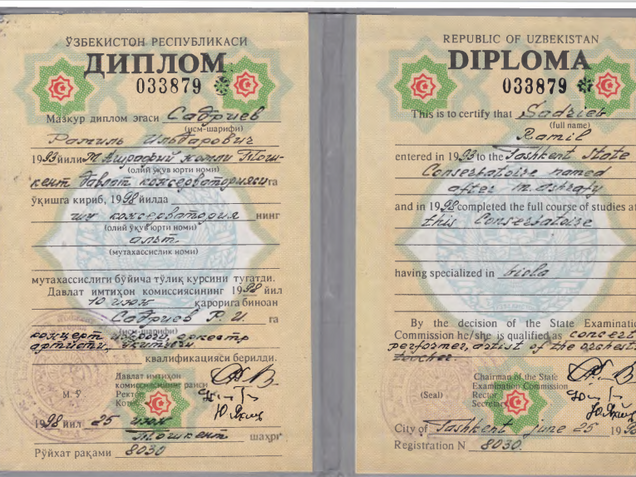 ЎЗБЕКИСТОН РЕСПУБЛИКАСИ
ДИПЛОМ
033879
Мазкур диплом эгаси Садриев
(исм-шарифи)
Рамиль Ильдарович
1993 йили М. Ашрафий номли Тош-
(олий ўқув юрти номи)
кент давлат консерваторияси га
ўқишга кириб, 1998 йилда
шу консерватория нинг
(олий ўқув юрти номи)
альт
(мутахассислик номи)
мутахассислиги бўйича тўлиқ курсини тугатди.
Давлат имтиҳон комиссиясининг 1998 йил
10 июн қарорига биноан
Садриев Р. И. га
(исм-шарифи)
концерт ижрочи, оркестр
артисти, ўқитувчи
квалификацияси берилди.
М. Ў.
Давлат имтиҳон
комиссиясининг раиси
Ректор
Котиб
1998 йил 25 июн
Тошкент шаҳри
Рўйхат рақами 8030
REPUBLIC OF UZBEKISTAN
DIPLOMA
033879
This is to certify that Sadriev
(full name)
Ramil
entered in 1993 to the Tashkent State
Conservatoire named
after m. ashrafy
and in 1998 completed the full course of studies at
this Conservatoire
having specialized in viola
By the decision of the State Examination
Commission he/she is qualified as concert
performer, artist of the orchestra
teacher.
(Seal)
Chairman of the State
Examination Commission
Rector
Secretary
City of Tashkent june 25 19
Registration N 8030